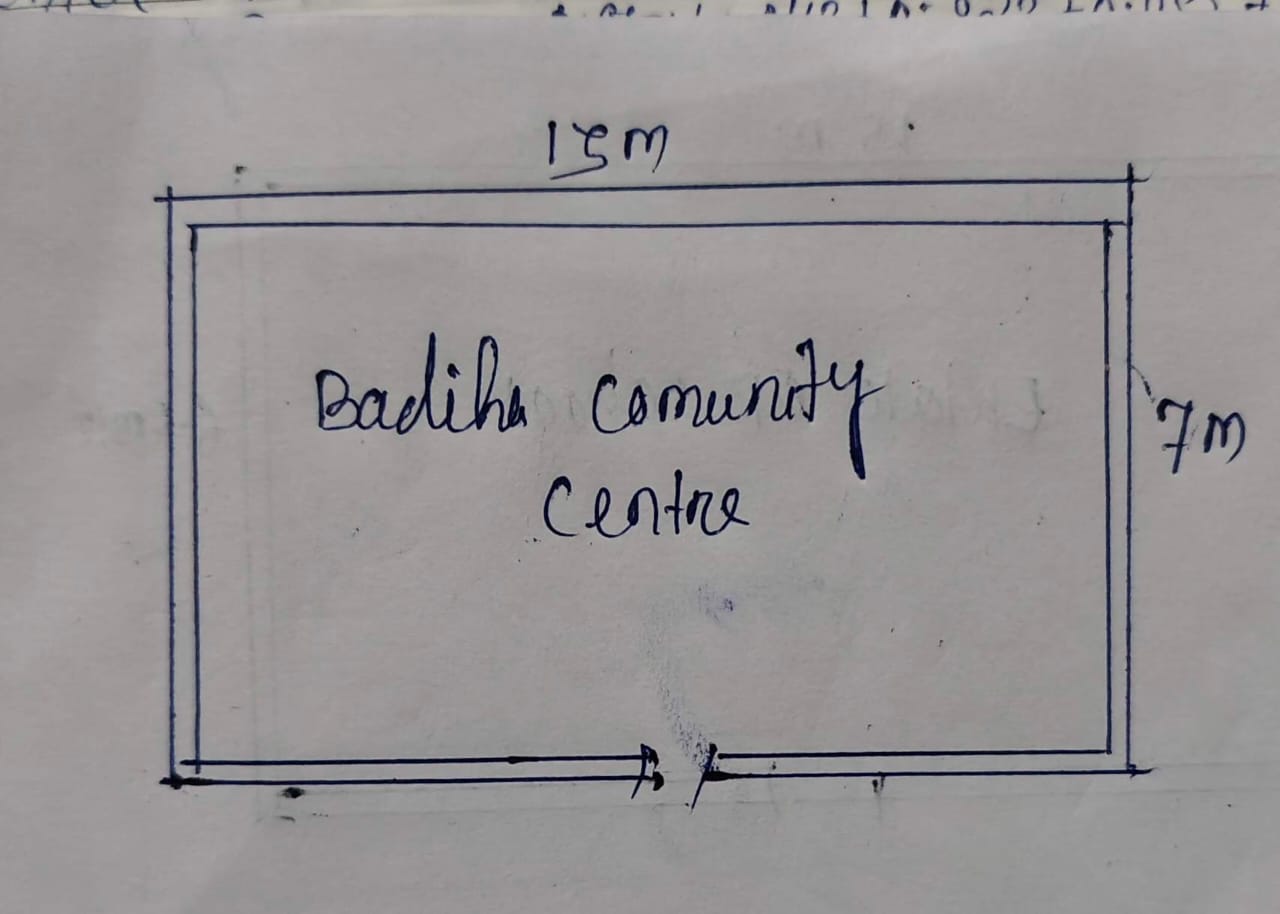 15m
Badiha Comunity
Centre
7m